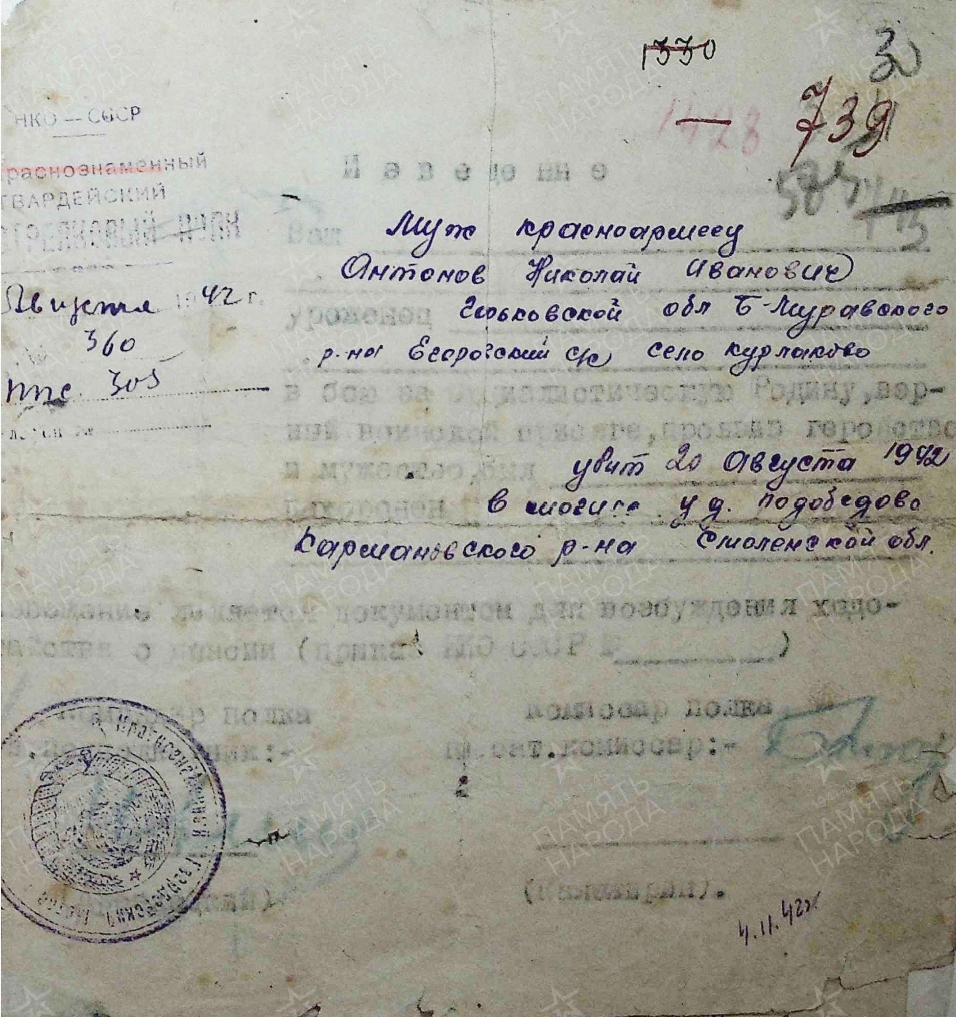 1330
30
1428
739
585
НКО — СССР
раснознаменный
ГВАРДЕЙСКИЙ
СТРЕЛКОВЫЙ ПОЛК
Августа 1942 г.
360
ппс 305
Извещение
Ваш Муж красноармеец
Антонов Николай Иванович
уроженец Горьковской обл Б-Муравского
р-на Егоровский с/с село Курлаково
в бою за социалистическую Родину, вер-
ный воинской присяге, проявив геройство
и мужество, был убит 20 Августа 1942
Похоронен в могиле у д. Подобедово
Кармановского р-на Смоленской обл.
является документом для возбуждения хода-
тайства о пенсии (приказ НКО СССР № )
полка
Комиссар полка
бат.комиссар:-
4.11.42г
ПАМЯТЬ НАРОДА